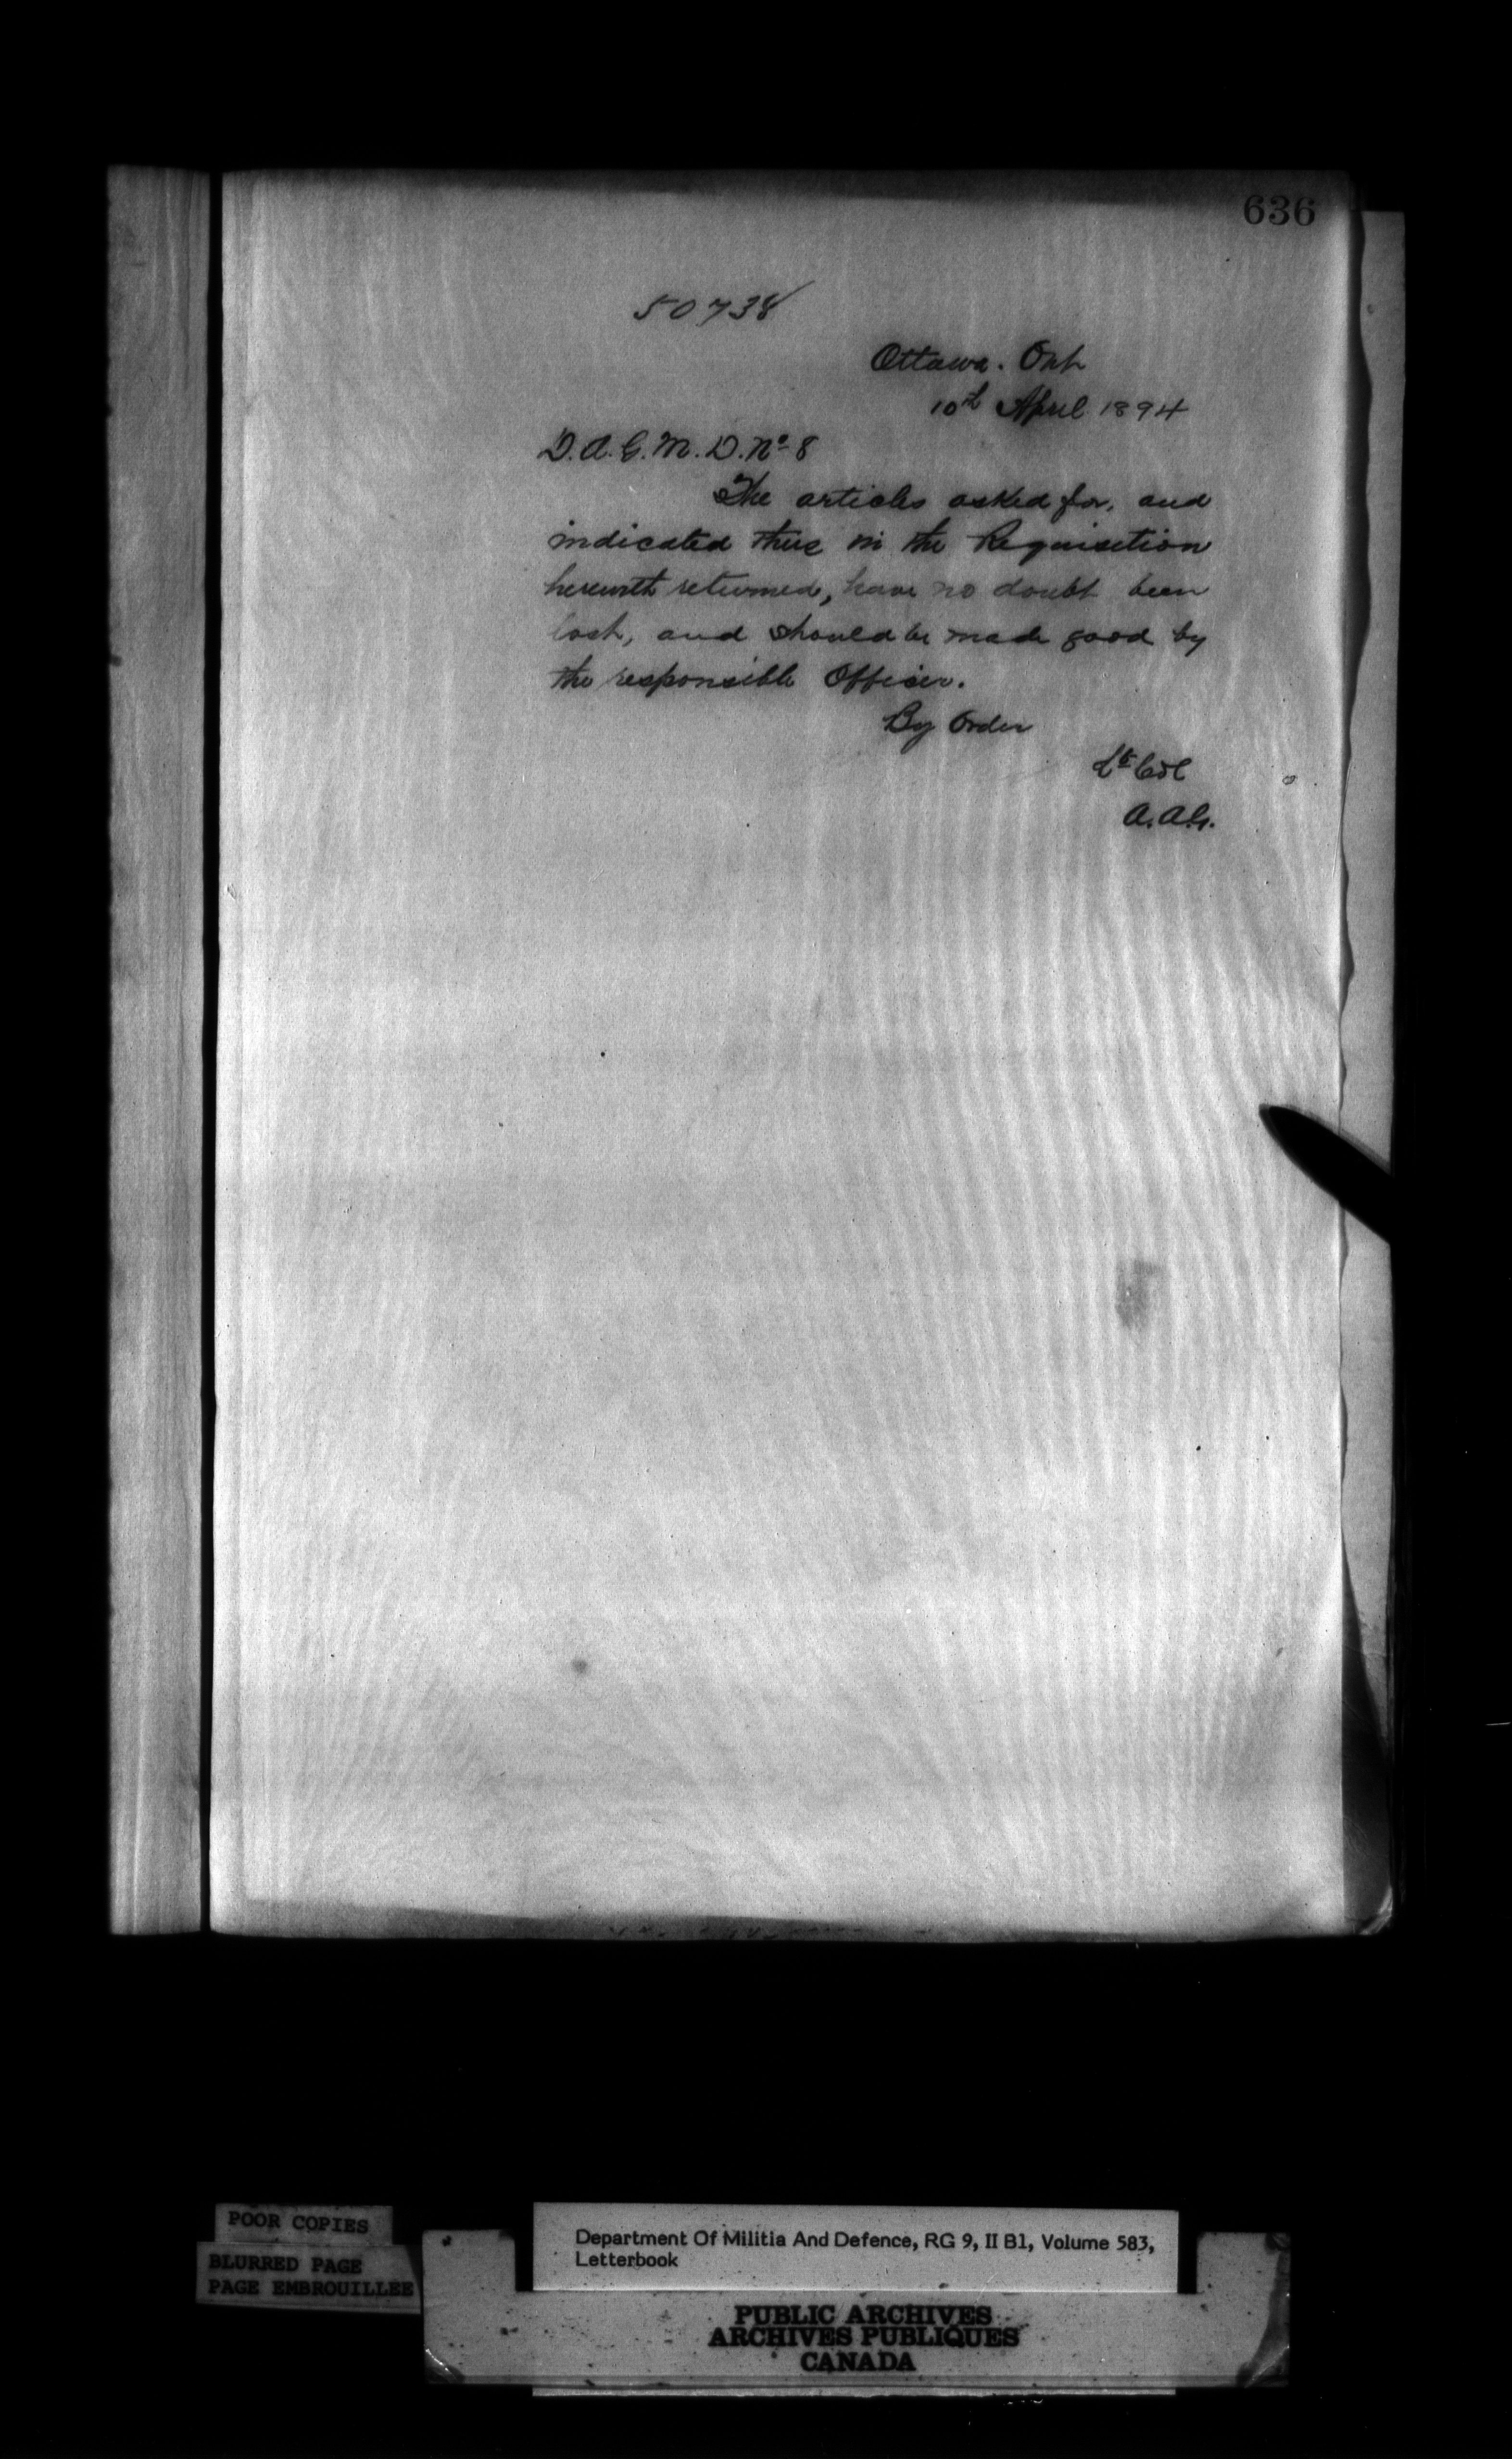 636
50738
Ottawa. Ont
10th April 1894
D.A.G.M.D. No 8
The articles asked for, and
indicated thus in the Requisition
herewith returned, have no doubt been
lost, and should be made good by
the responsible Officer.
By Order
Lt Col
A.A.G.
POOR COPIES
BLURRED PAGE
PAGE EMBROUILLEE
Department Of Militia And Defence, RG 9, II B1, Volume 583,
Letterbook
PUBLIC ARCHIVES
ARCHIVES PUBLIQUES
CANADA